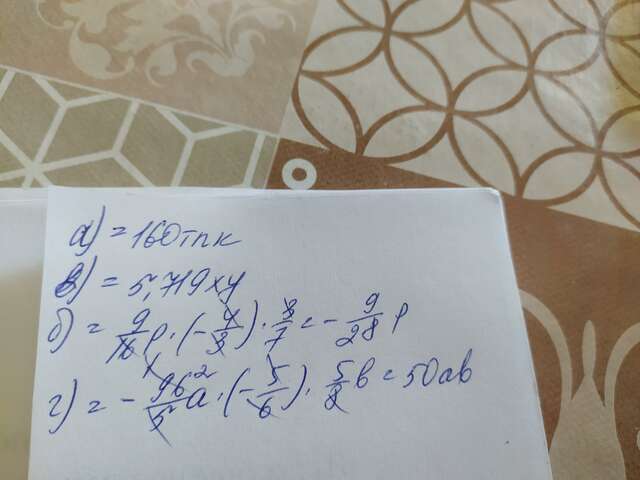 а) = 160mnk
в) = 5,719xy
б) = 9/16 p · (-4/3) · 3/7 = - 9/28 p
г) = - 96/5 a · (-5/6) · 5/8 b = 50ab